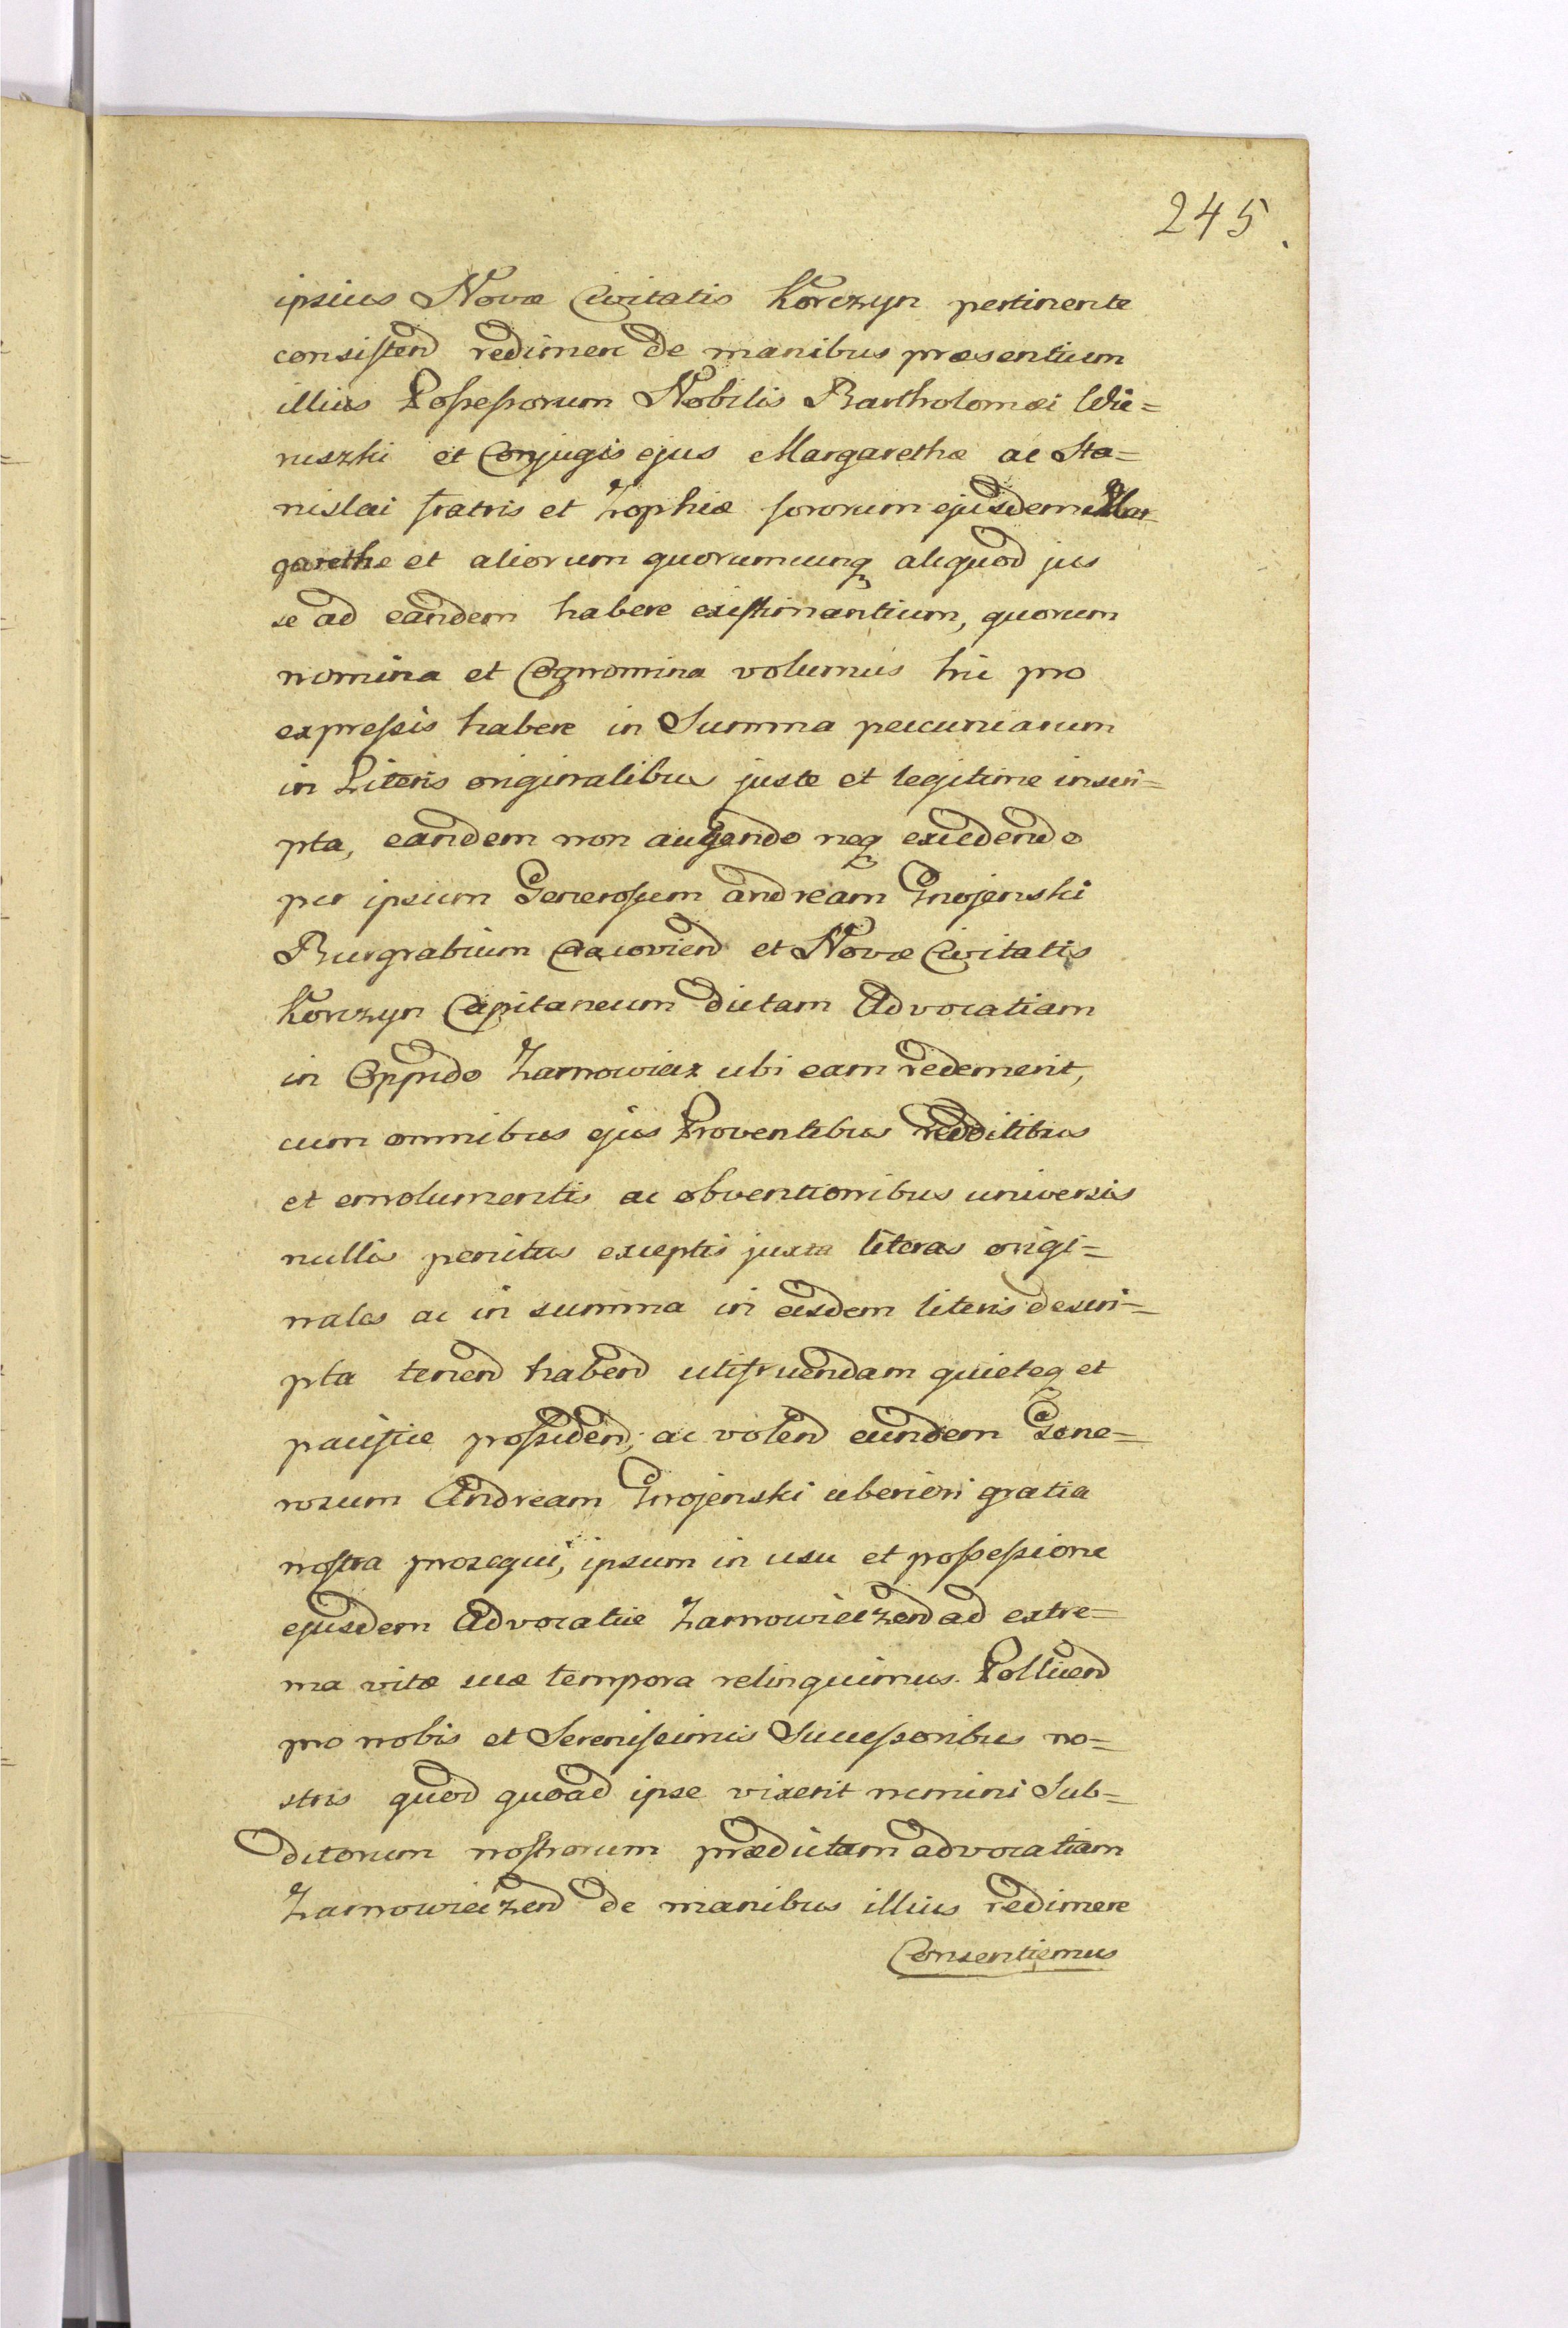 245.
ipsius Novæ Civitatis Korczyn pertinente
consistend redimere de manibus præsentium
illius Possessorum Nobilis Bartholomæi Wie=
ruszki et Conjugis ejus Margarethæ ac Sta=
nislai fratris et Zophiæ sororum ejusdem Mar=
garethæ et aliorum quorumcunq aliquod jus
se ad eandem habere existimantium, quorum
nomina et Cognomina volumus hic pro
expressis habere in Summa pecuniarum
in Literis originalibus juste et legitime inscri=
pta, eandem non augendo neq excedendo
per ipsum Generosum andream Gnojenski
Burgrabium Cracoviend et Novæ Civitatis
Korczyn Capitaneum dictam Advocatiam
in Oppido Zarnowiecz ubi eam redemerit,
cum omnibus ejus Proventibus redditibus
et emolumentis ac obventionibus universis
nullis penitus exceptis juxta literas origi=
nales ac in summa in eisdem literis descri=
pta tenend habend utifruendam quieteq et
pacifice possidend; ac volend eundem Gene=
rosum Andream Gnojenski uberiori gratia
nostra prosequi, ipsum in usu et possessione
ejusdem Advocatiæ Zarnowieczend ad extre=
ma vitæ suæ tempora relinquimus. Pollicend
pro nobis et Serenissimis Successoribus no=
stris quod quoad ipse vixerit nemini Sub=
ditorum nostrorum prædictam advocatiam
Zarnowieczend de manibus illius redimere
Consentiemus